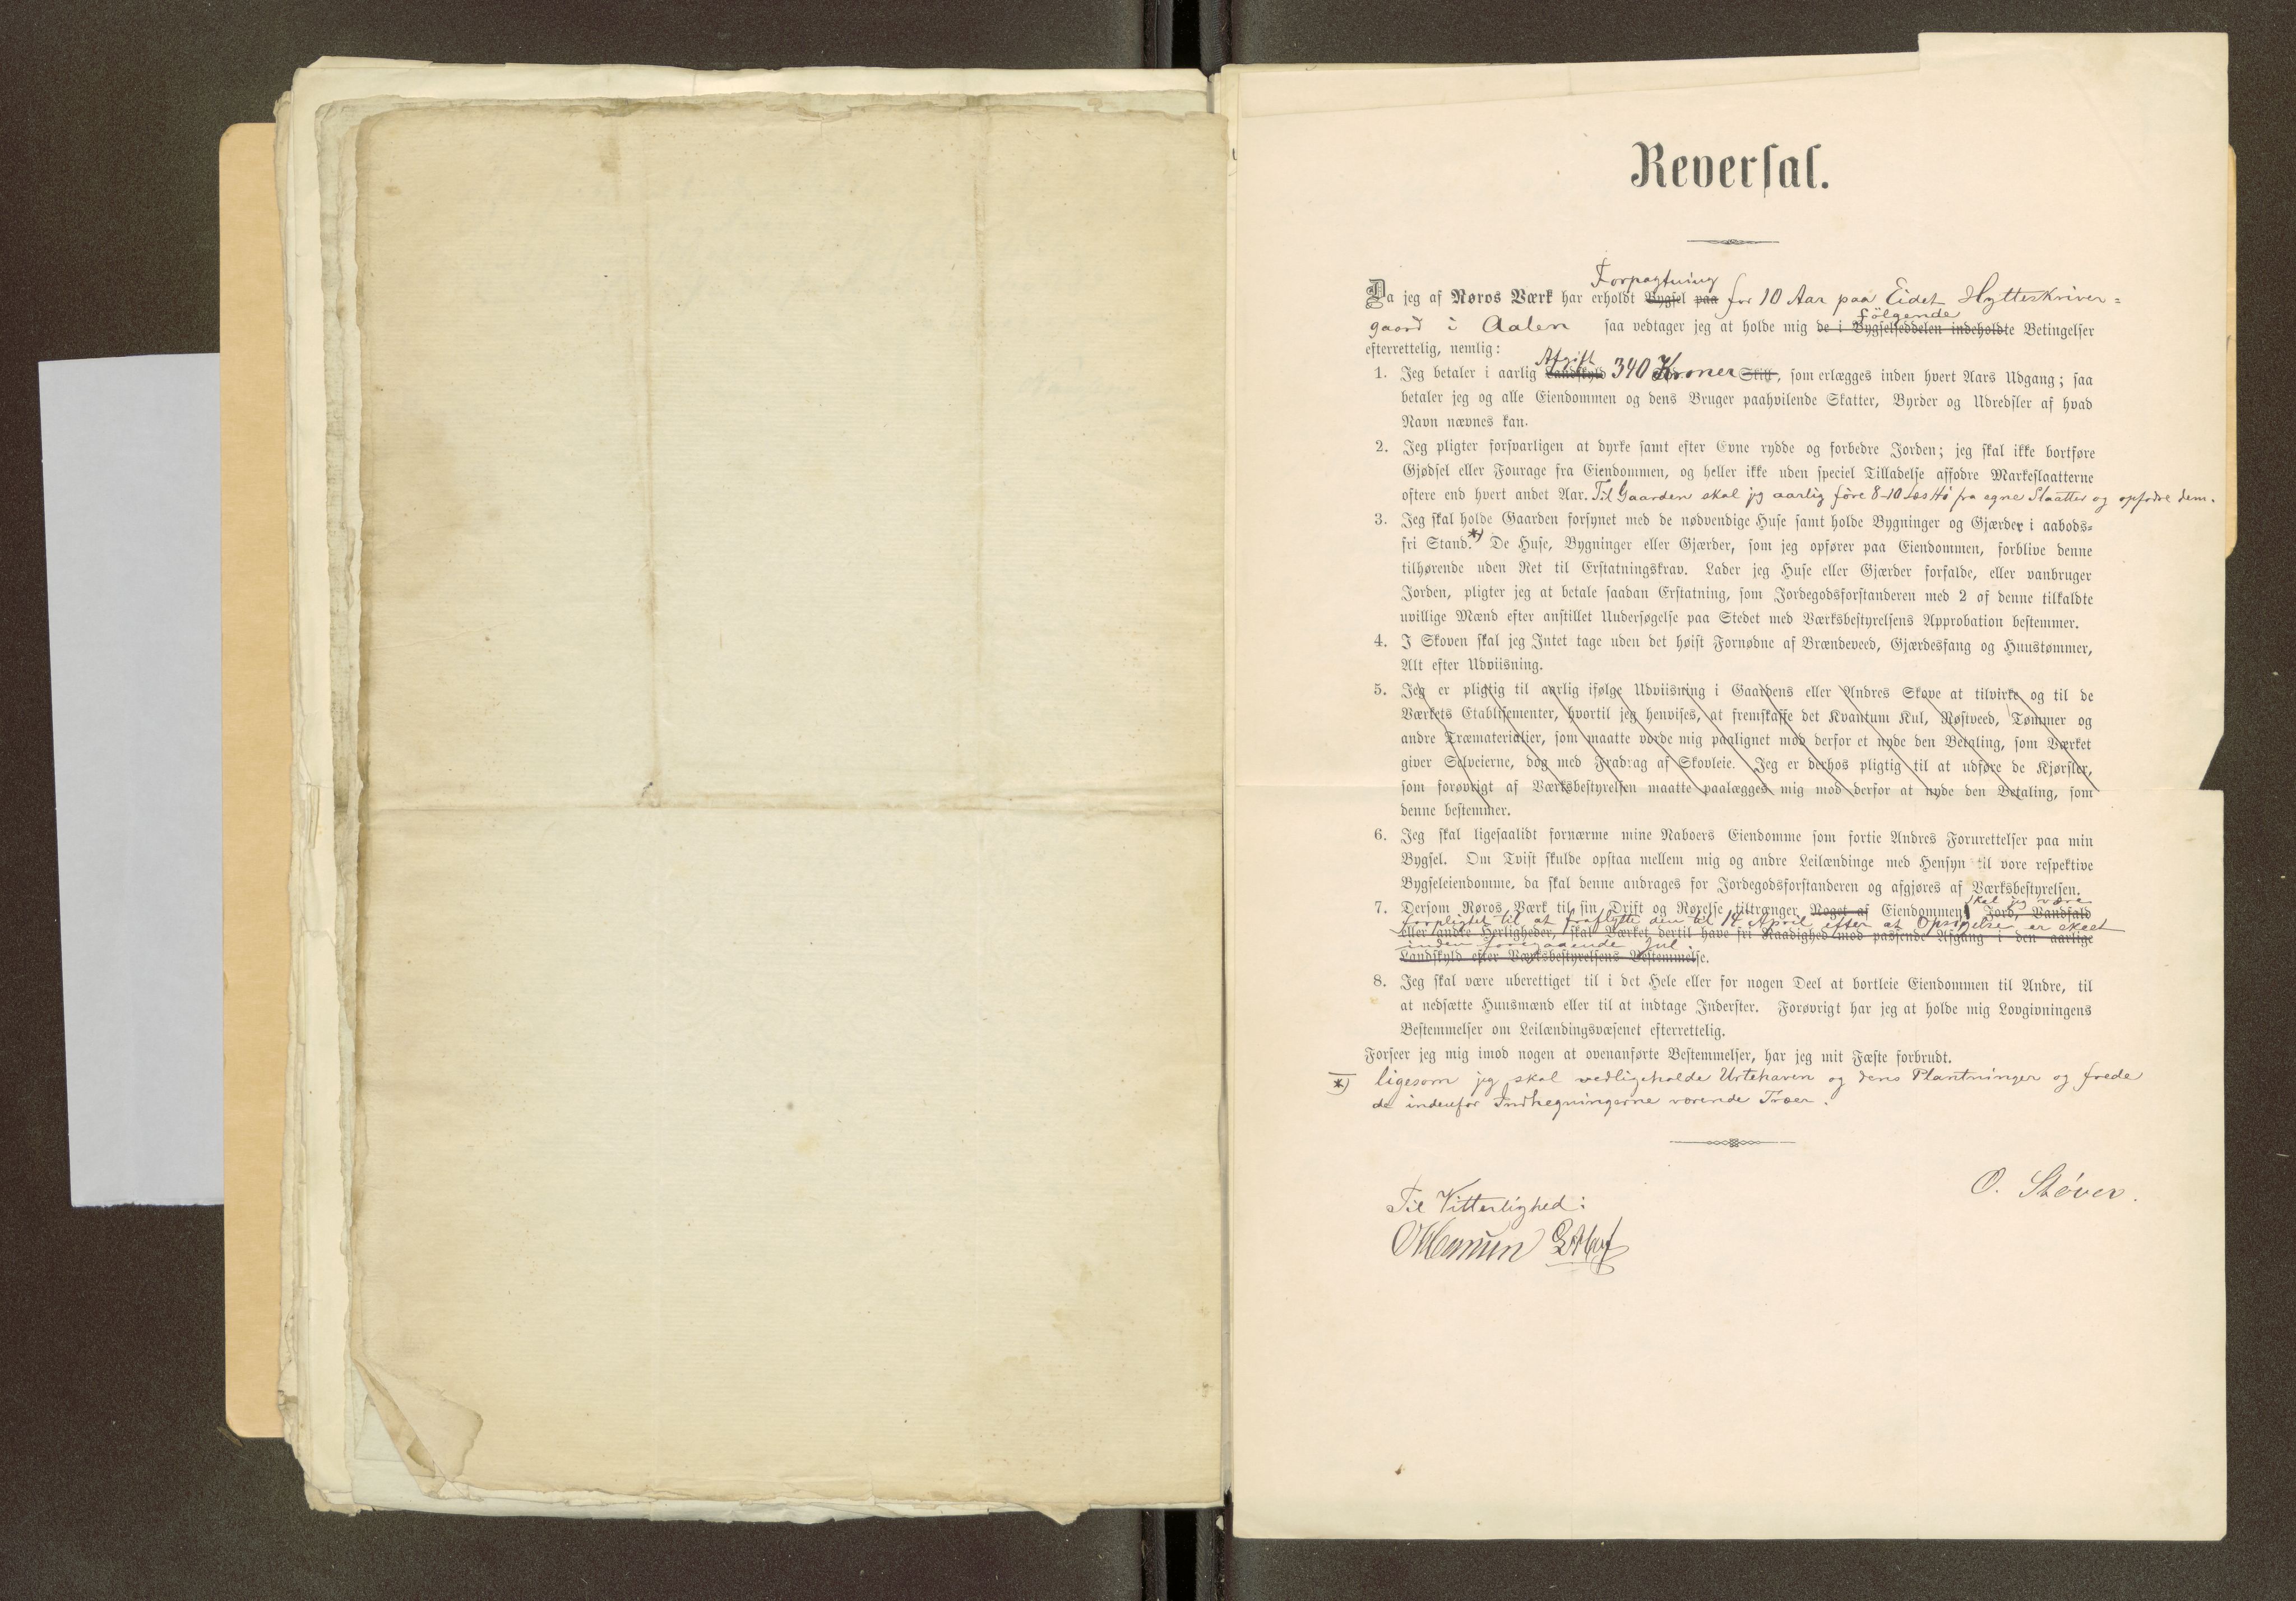 Reversal.
Forpagtning
Da jeg af Røros Værk har erholdt Bygsel paa for 10 Aar paa Eidet Hytteskriver=
følgende
gaard i Aalen saa vedtager jeg at holde mig de i Bygselseddelen indeholdte Betingelser
efterrettelig, nemlig:
Afgift
1. Jeg betaler i aarlig Landskyld 340 Kroner Skill, som erlægges inden hvert Aars Udgang; saa
betaler jeg og alle Eiendommen og dens Bruger paahvilende Skatter, Byrder og Udredsler af hvad
Navn nævnes kan.
2. Jeg pligter forsvarligen at dyrke samt efter Evne rydde og forbedre Jorden; jeg skal ikke bortføre
Gjødsel eller Fourage fra Eiendommen, og heller ikke uden speciel Tilladelse affodre Markeslaatterne
oftere end hvert andet Aar. Til Gaarden skal jeg aarlig føre 8-10 Læs Hø fra egne Slaatter og opfodre dem.
3. Jeg skal holde Gaarden forsynet med de nødvendige Huse samt holde Bygninger og Gjærder i aabods=
fri Stand.*) De Huse, Bygninger eller Gjærder, som jeg opfører paa Eiendommen, forblive denne
tilhørende uden Ret til Erstatningskrav. Lader jeg Huse eller Gjærder forfalde, eller vanbruger
Jorden, pligter jeg at betale saadan Erstatning, som Jordegodsforstanderen med 2 af denne tilkaldte
uvillige Mænd efter anstillet Undersøgelse paa Stedet med Værksbestyrelsens Approbation bestemmer.
4. I Skoven skal jeg Intet tage uden det høist Fornødne af Brændeveed, Gjærdesfang og Huustømmer,
Alt efter Udviisning.
5. Jeg er pligtig til aarlig ifølge Udviisning i Gaardens eller Andres Skove at tilvirke og til de
Værkets Etablisementer, hvortil jeg henvises, at fremskaffe det Kvantum Kul, Røstveed, Tømmer og
andre Træmaterialier, som maatte vorde mig paalignet mod derfor et nyde den Betaling, som Værket
giver Selveierne, dog med Fradrag af Skovleie. Jeg er derhos pligtig til at udføre de Kjørsler,
som forøvrigt af Værksbestyrelsen maatte paalægges mig mod derfor at nyde den Betaling, som
denne bestemmer.
6. Jeg skal ligesaalidt fornærme mine Naboers Eiendomme som fortie Andres Forurettelser paa min
Bygsel. Om Tvist skulde opstaa mellem mig og andre Leilændinge med Hensyn til vore respektive
Bygseleiendomme, da skal denne andrages for Jordegodsforstanderen og afgjøres af Værksbestyrelsen.
skal jeg være
7. Dersom Røros Værk til sin Drift og Rørelse tiltrænger Noget af Eiendommens Jord, Vandfald
forpligtet til at fraflytte den til 14 April efter at Opsigelse er skeet
eller andre Herligheder, skal Værket dertil have fri Raadighed mod passende Afgang i den aarlige
inden foregaaende Jul.
Landskyld efter Værksbestyrelsens Bestemmelse.
8. Jeg skal være uberettiget til i det Hele eller for nogen Deel at bortleie Eiendommen til Andre, til
at nedsætte Huusmænd eller til at indtage Inderster. Forøvrigt har jeg at holde mig Lovgivningens
Bestemmelser om Leilændingsvæsenet efterrettelig.
Forseer jeg mig imod nogen at ovenanførte Bestemmelser, har jeg mit Fæste forbrudt.
*) ligesom jeg skal vedligeholde Urtehaven og dens Plantninger og frede
de indenfor Indhegningerne værende Træer.
O. Støver.
Til Vitterlighed: